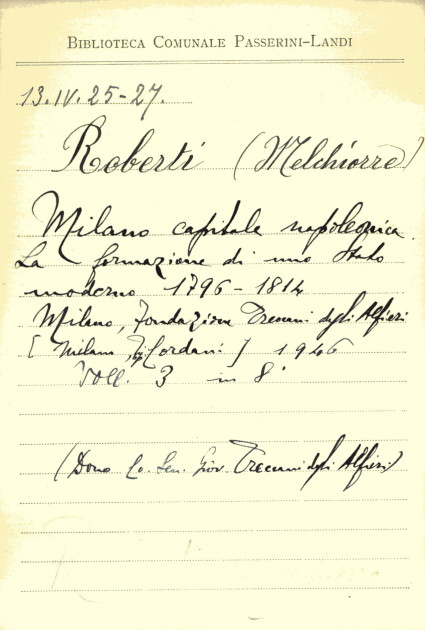 BIBLIOTECA COMUNALE PASSERINI-LANDI
13.IV.25-27.
Roberti (Melchiorre)
Milano capitale napoleonica.
La formazione di uno Stato
moderno 1796-1814
Milano, Fondazione Treccani degli Alfieri
[Milano, Tip. Cordani] 1946
Voll. 3 in 8°
(Dono Co. Sen. Giov. Treccani degli Alfieri)